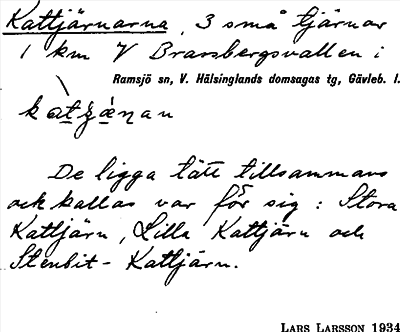 Kattjärnarna, 3 små tjärnar
1 km V Brarsbergsvallen i
Ramsjö sn, V. Hälsinglands domsagas tg, Gävleb. l.
De ligga tätt tillsammans
och kallas var för sig: Stora
Kattjärn, Lilla Kattjärn och
Stenbit-Kattjärn.
LARS LARSSON 1934